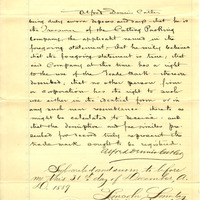 Alfred Dennis Cutler
being duly sworn deposes and says that he is
the Treasurer of the Cutting Packing
Company, the applicant named in the
foregoing statement; that he verily believes
that the foregoing statement is true; that
said Company at this time has a right
to the use of the Trade-Mark therein
described; that no other person, firm
or corporation has the right to such
use either in the identical form or in
any such near resemblance thereto as
might be calculated to deceive; and
that the description and facsimiles pre-
sented for record truly represent the
trade-mark sought to be required.
Alfred Dennis Cutler
Subscribed and sworn to before
me this 21st day of November, A.
D. 1889